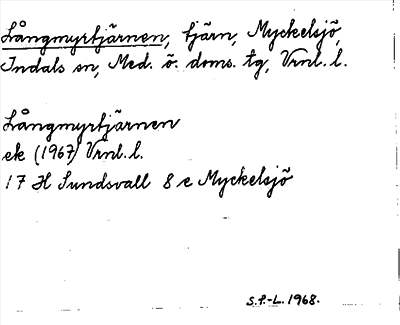 Långmyrtjärnen, tjärn, Myckelsjö,
Indals sn, Med. ö. doms. tg, Vrnl. l.
Långmyrtjärnen
ek (1967) Vrnl. l.
17 H Sundsvall 8 e Myckelsjö
S.F.-L. 1968.